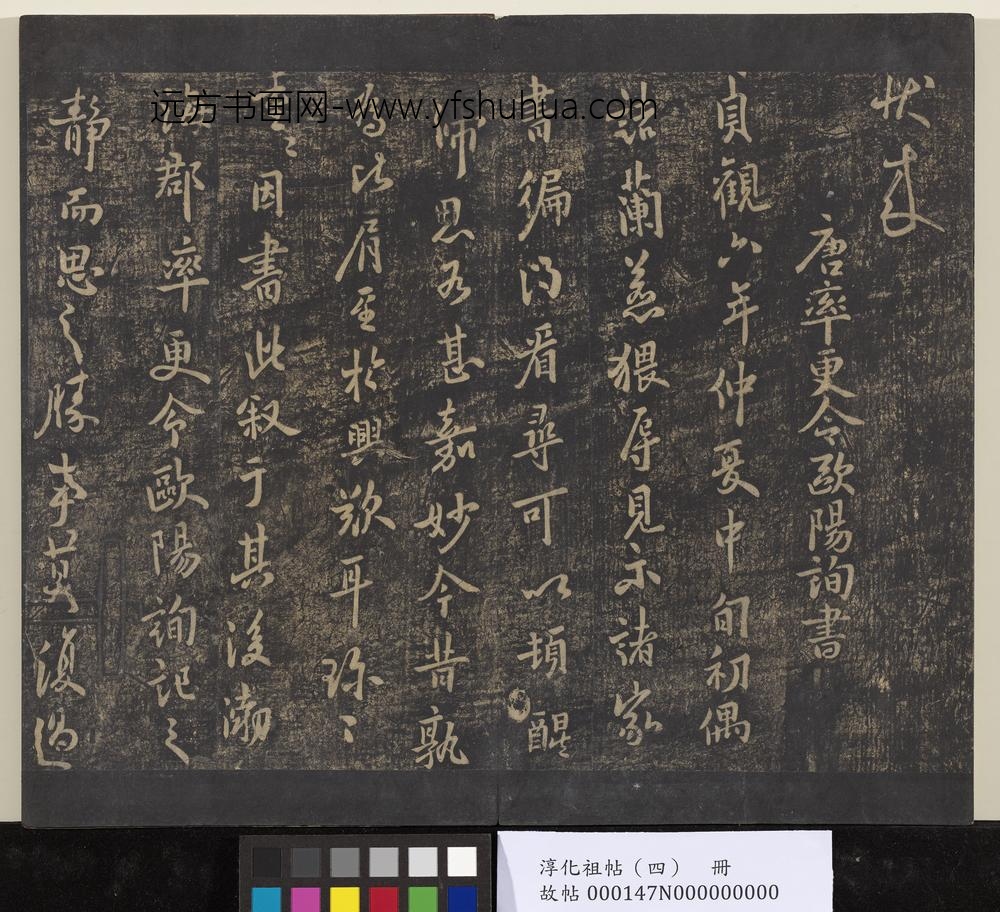 状
唐率更令歐陽詢書
貞觀六年仲夏中旬初偶
詣蘭惹猥辱見示諸家
書徧得看尋可以頓醒
滯思各甚嘉妙今昔孰
為比肩至於興歎耳珎〻
重〻因書此叙于其後渤
海郡率更令歐陽詢記之
靜而思之勝事莫復過
远方书画网-www.yfshuhua.com
淳化祖帖（四） 冊
故帖 000147N000000000